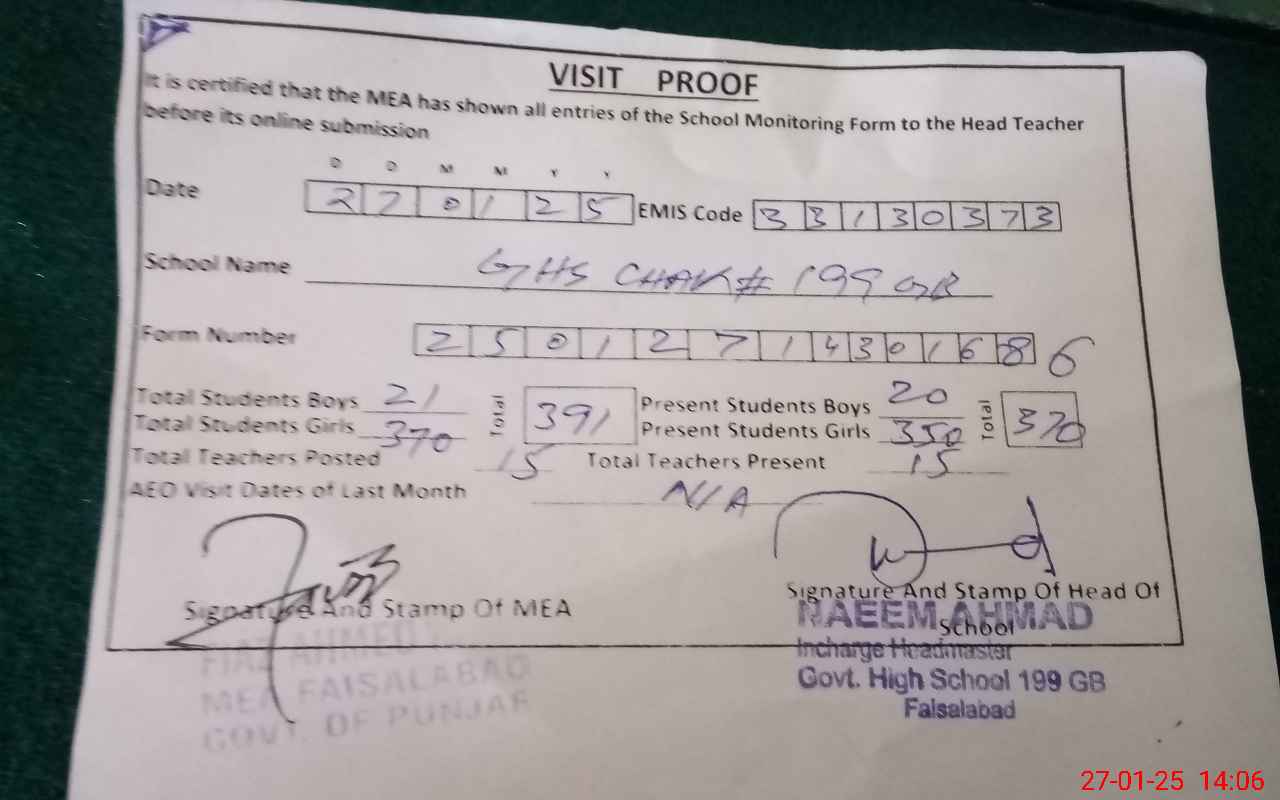 VISIT PROOF
It is certified that the MEA has shown all entries of the School Monitoring Form to the Head Teacher
before its online submission
D D M M Y Y
Date 2 7 0 1 2 5 EMIS Code 3 3 1 3 0 3 7 3
School Name GHS CHAK# 199 GB
Form Number 2 5 0 1 2 7 1 4 3 0 1 6 8 6
Total Students Boys 21 Total 391 Present Students Boys 20 Total 370
Total Students Girls 370 Present Students Girls 350
Total Teachers Posted 15 Total Teachers Present 15
AEO Visit Dates of Last Month N/A
Signature And Stamp Of MEA
Signature And Stamp Of Head Of
School
AHMED
MEA FAISALABAD
GOVT. OF PUNJAB
NAEEM AHMAD
Incharge Headmaster
Govt. High School 199 GB
Faisalabad
27-01-25 14:06